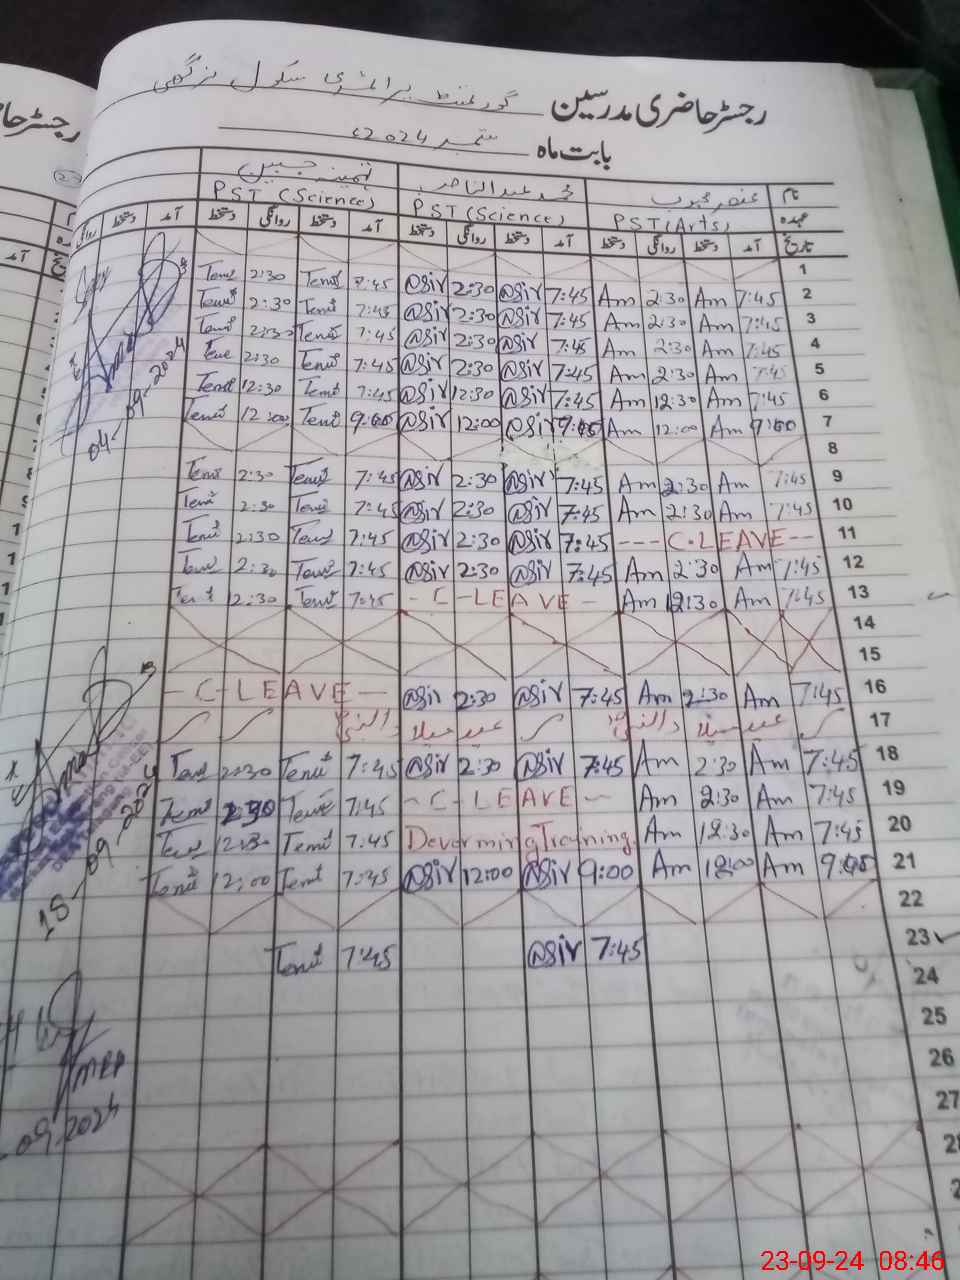 رجسٹر حاضری مدرسین گورنمنٹ پرائمری سکول
بابت ماہ ستمبر 2024ء
نام عنصر محبوب محمد عبدالناصر ثمینہ جبین
عہدہ PST (Arts) PST (Science) PST (Science)
تاریخ آمد دستخط روانگی دستخط آمد دستخط روانگی دستخط آمد دستخط روانگی دستخط آمد دستخط روانگی
1
Temi 2:30 Temi 7:45 @Sir 2:30 @Sir 7:45 Am 2:30 Am 7:45 2
Temi 2:30 Temi 7:45 @Sir 2:30 @Sir 7:45 Am 2:30 Am 7:45 3
Temi 2:30 Temi 7:45 @Sir 2:30 @Sir 7:45 Am 2:30 Am 7:45 4
Temi 2:30 Temi 7:45 @Sir 2:30 @Sir 7:45 Am 2:30 Am 7:45 5
Temi 12:30 Temi 7:45 @Sir 12:30 @Sir 7:45 Am 12:30 Am 7:45 6
Temi 12:00 Temi 9:00 @Sir 12:00 @Sir 9:00 Am 12:00 Am 9:00 7
8
Temi 2:30 Temi 7:45 @Sir 2:30 @Sir 7:45 Am 2:30 Am 7:45 9
Temi 2:30 Temi 7:45 @Sir 2:30 @Sir 7:45 Am 2:30 Am 7:45 10
Temi 2:30 Temi 7:45 @Sir 2:30 @Sir 7:45 --- C-LEAVE -- 11
Temi 2:30 Temi 7:45 @Sir 2:30 @Sir 7:45 Am 2:30 Am 7:45 12
Temi 2:30 Temi 7:45 - C-LEAVE - Am 12:30 Am 7:45 13
14
15
- C-LEAVE - @Sir 2:30 @Sir 7:45 Am 2:30 Am 7:45 16
عید میلاد النبیؐ عید میلاد النبیؐ 17
Temi 2:30 Temi 7:45 @Sir 2:30 @Sir 7:45 Am 2:30 Am 7:45 18
Temi 2:30 Temi 7:45 - C-LEAVE - Am 2:30 Am 7:45 19
Temi 12:30 Temi 7:45 Deworming Training Am 12:30 Am 7:45 20
Temi 12:00 Temi 7:45 @Sir 12:00 @Sir 9:00 Am 12:00 Am 9:05 21
22
Temi 7:45 @Sir 7:45 23
24
25
26
27
04-09-2024
18-09-2024
09-2024
23-09-24 08:46